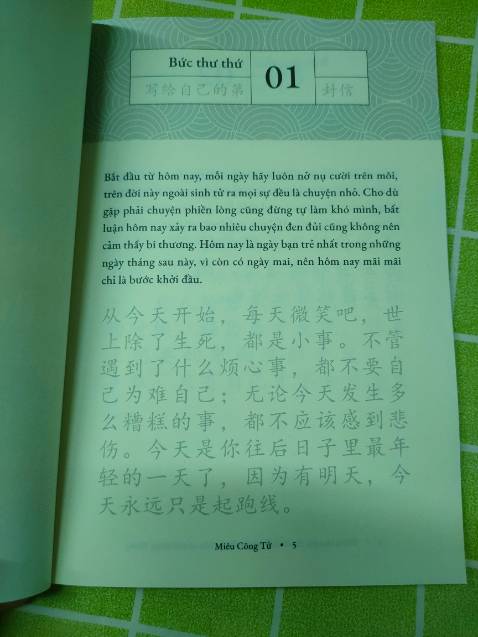 Bức thư thứ
01
写给自己的第
封信
Bắt đầu từ hôm nay, mỗi ngày hãy luôn nở nụ cười trên môi,
trên đời này ngoài sinh tử ra mọi sự đều là chuyện nhỏ. Cho dù
gặp phải chuyện phiền lòng cũng đừng tự làm khó mình, bất
luận hôm nay xảy ra bao nhiêu chuyện đen đủi cũng không nên
cảm thấy bi thương. Hôm nay là ngày bạn trẻ nhất trong những
ngày tháng sau này, vì còn có ngày mai, nên hôm nay mãi mãi
chỉ là bước khởi đầu.
从今天开始，每天微笑吧，世
上除了生死，都是小事。不管
遇到了什么烦心事，都不要自
己为难自己；无论今天发生多
么糟糕的事，都不应该感到悲
伤。今天是你往后日子里最年
轻的一天了，因为有明天，今
天永远只是起跑线。
Miêu Công Tử • 5